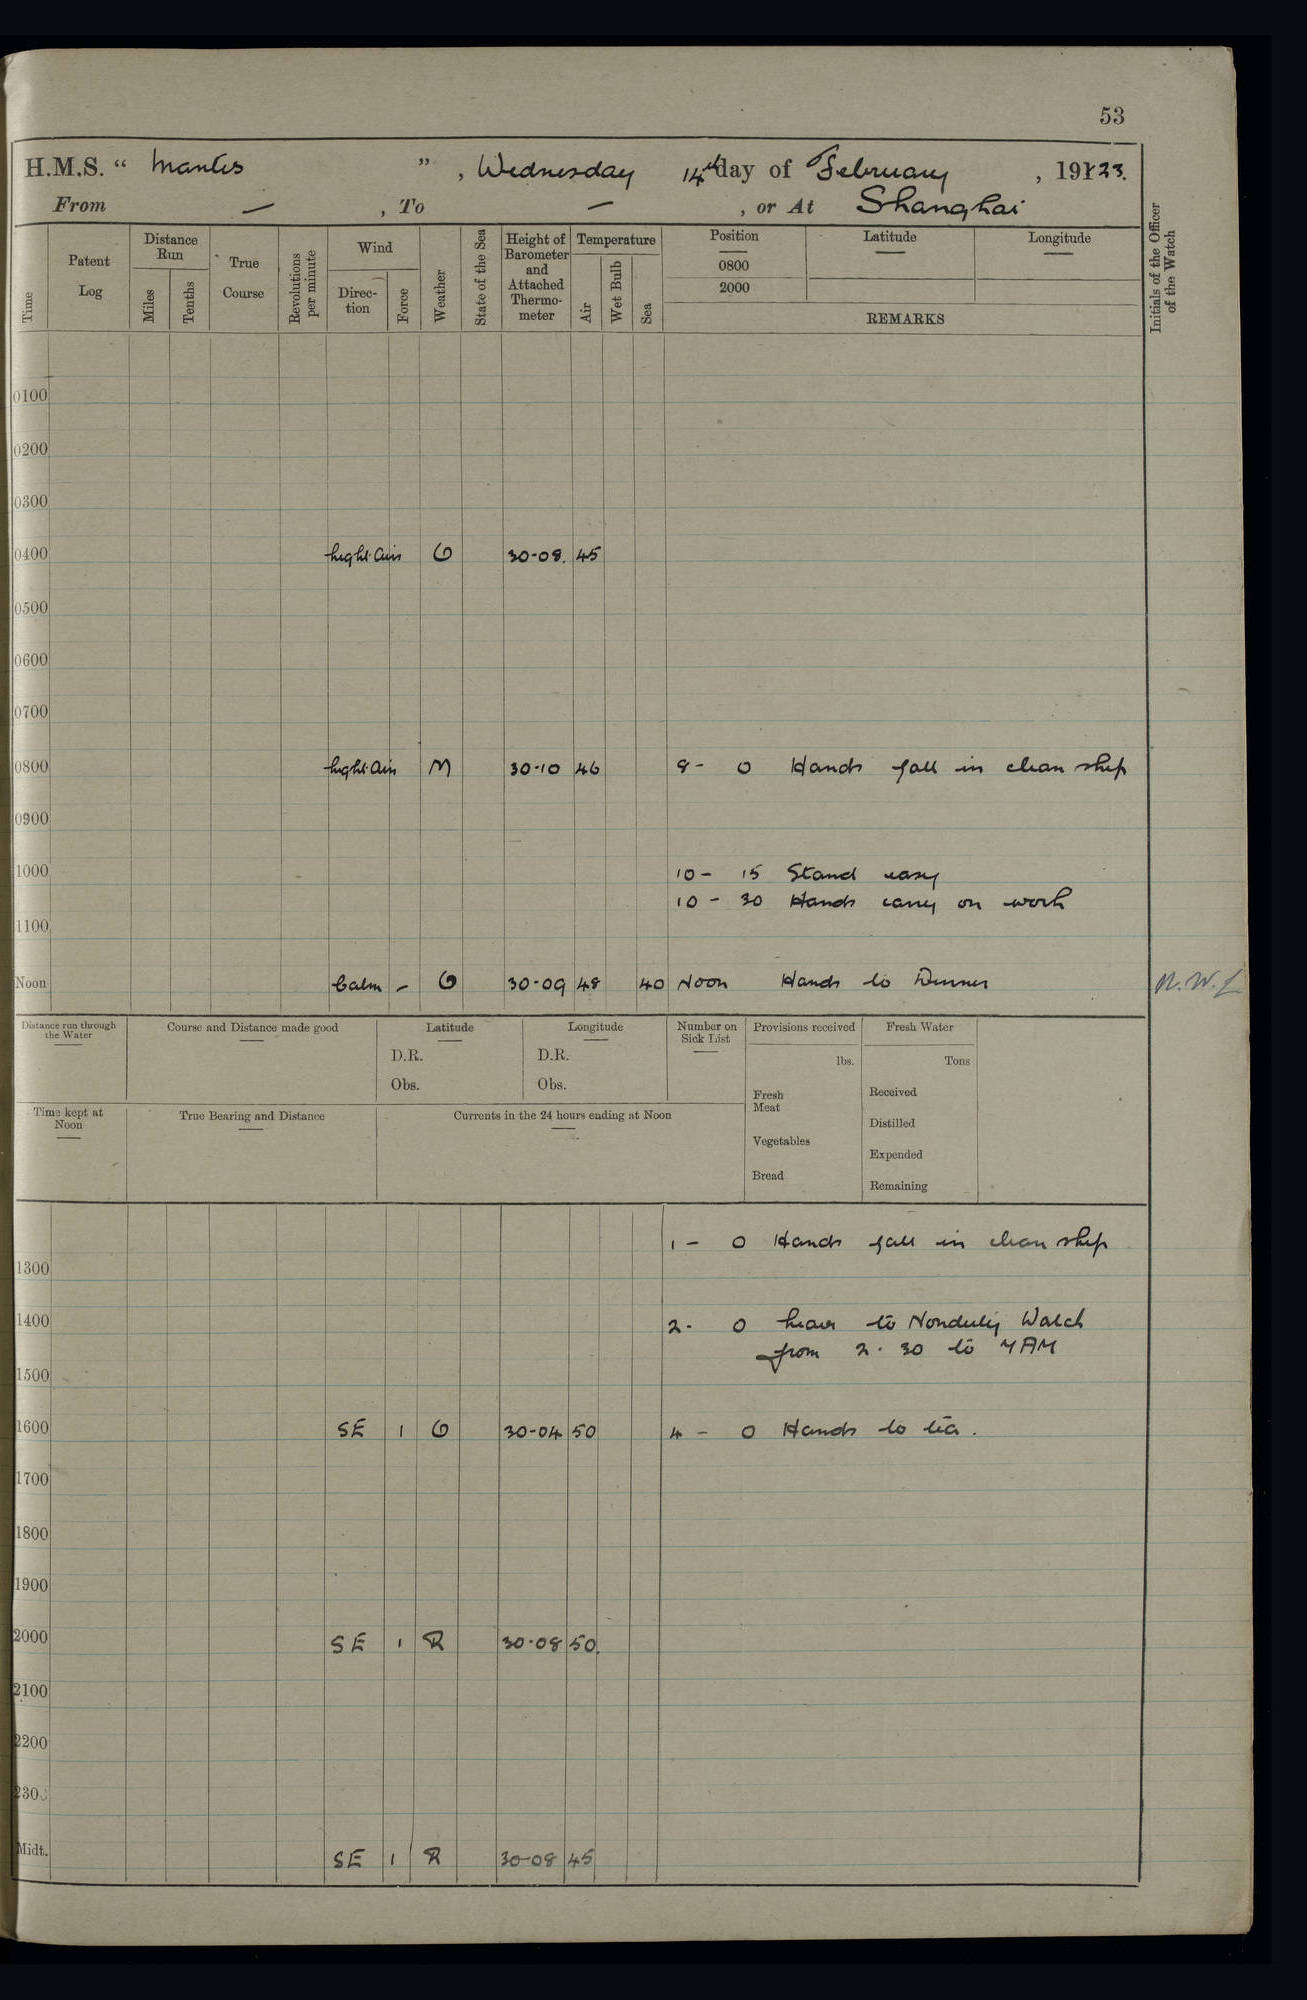 53
H.M.S. “ Mantis ”, Wednesday 14th day of February, 1923.
From — , To — , or At Shanghai
Time
Patent Log
Distance Run
Miles
Tenths
True Course
Revolutions per minute
Wind
Direction
Force
Weather
State of the Sea
Height of Barometer and Attached Thermometer
Temperature
Air
Wet Bulb
Sea
Position
0800
2000
Latitude
Longitude
REMARKS
Initials of the Officer of the Watch
0100
0200
0300
0400 Light Airs O 30-08. 45
0500
0600
0700
0800 Light Airs M 30-10 46 8- 0 Hands fall in clean ship
0900
1000 10- 15 Stand easy
10 - 30 Hands carry on work
1100
Noon Calm - O 30-09 48 40 Noon Hands to Dinner
Distance run through the Water
Course and Distance made good
Latitude
D.R.
Obs.
Longitude
D.R.
Obs.
Number on Sick List
Provisions received
lbs.
Fresh Meat
Vegetables
Bread
Fresh Water
Tons
Received
Distilled
Expended
Remaining
Time kept at Noon
True Bearing and Distance
Currents in the 24 hours ending at Noon
1 - 0 Hands fall in clean ship
1300
1400 2- 0 Leave to Nonduty Watch
from 2.30 to 7AM
1500
1600 SE 1 O 30-04 50 4 - 0 Hands to tea.
1700
1800
1900
2000 SE 1 R 30-08 50.
2100
2200
2300
Midt. SE 1 R 30-08 45